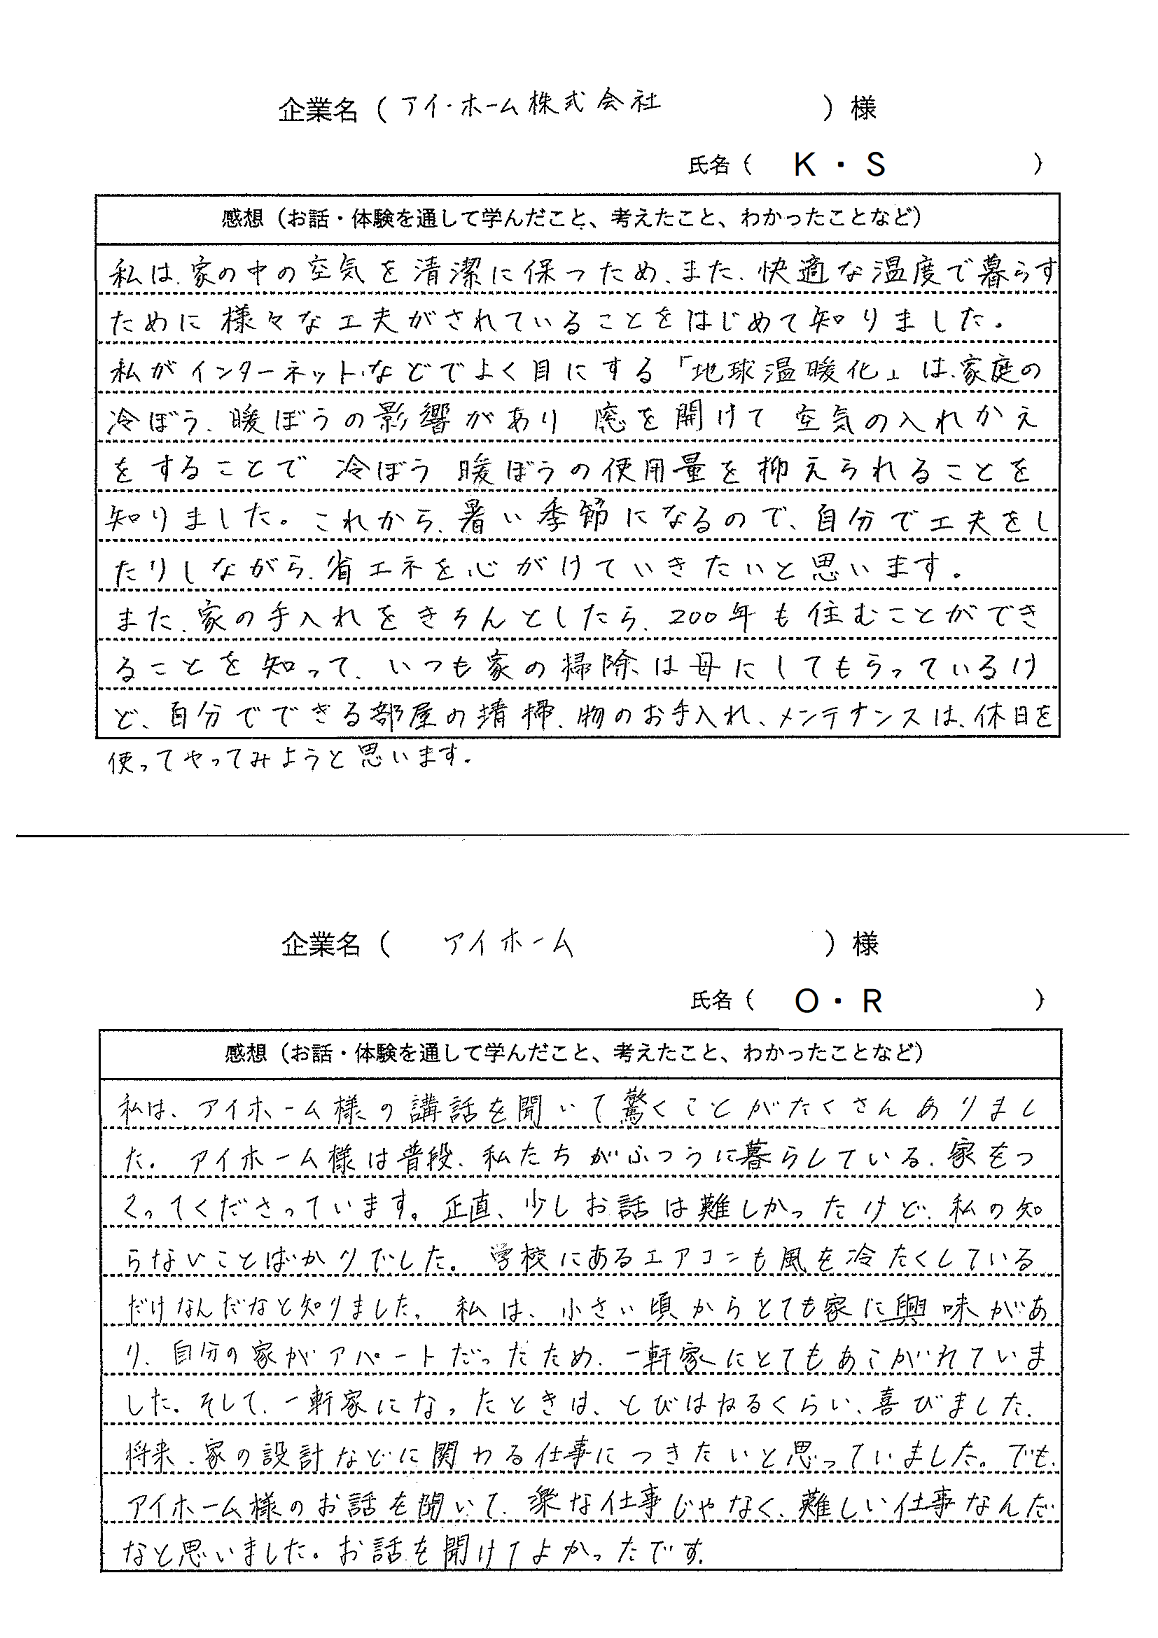 企業名（ アイ・ホーム株式会社 ）様
氏名（ K・S ）
感想（お話・体験を通して学んだこと、考えたこと、わかったことなど）
私は、家の中の空気を清潔に保つため、また、快適な温度で暮らす
ために様々な工夫がされていることをはじめて知りました。
私がインターネットなどでよく目にする「地球温暖化」は、家庭の
冷ぼう、暖ぼうの影響があり 窓を開けて 空気の入れかえ
をすることで 冷ぼう 暖ぼうの使用量を抑えられることを
知りました。これから、暑い季節になるので、自分で工夫をし
たりしながら、省エネを心がけていきたいと思います。
また、家の手入れをきちんとしたら、200年も住むことができ
ることを知って、いつも家の掃除は母にしてもらっているけ
ど、自分でできる部屋の清掃、物のお手入れ、メンテナンスは、休日を
使ってやってみようと思います。
企業名（ アイホーム ）様
氏名（ O・R ）
感想（お話・体験を通して学んだこと、考えたこと、わかったことなど）
私は、アイホーム様の講話を聞いて驚くことがたくさんありまし
た。アイホーム様は普段、私たちがふつうに暮らしている、家をつ
くってくださっています。正直、少しお話は難しかったけど、私の知
らないことばかりでした。学校にあるエアコンも風を冷たくしている
だけなんだなと知りました。私は、小さい頃からとても家に興味があ
り、自分の家がアパートだったため、一軒家にとてもあこがれていま
した。そして、一軒家になったときは、とびはねるくらい、喜びました。
将来、家の設計などに関わる仕事につきたいと思っていました。でも、
アイホーム様のお話を聞いて、楽な仕事じゃなく、難しい仕事なんだ
なと思いました。お話を聞けてよかったです。